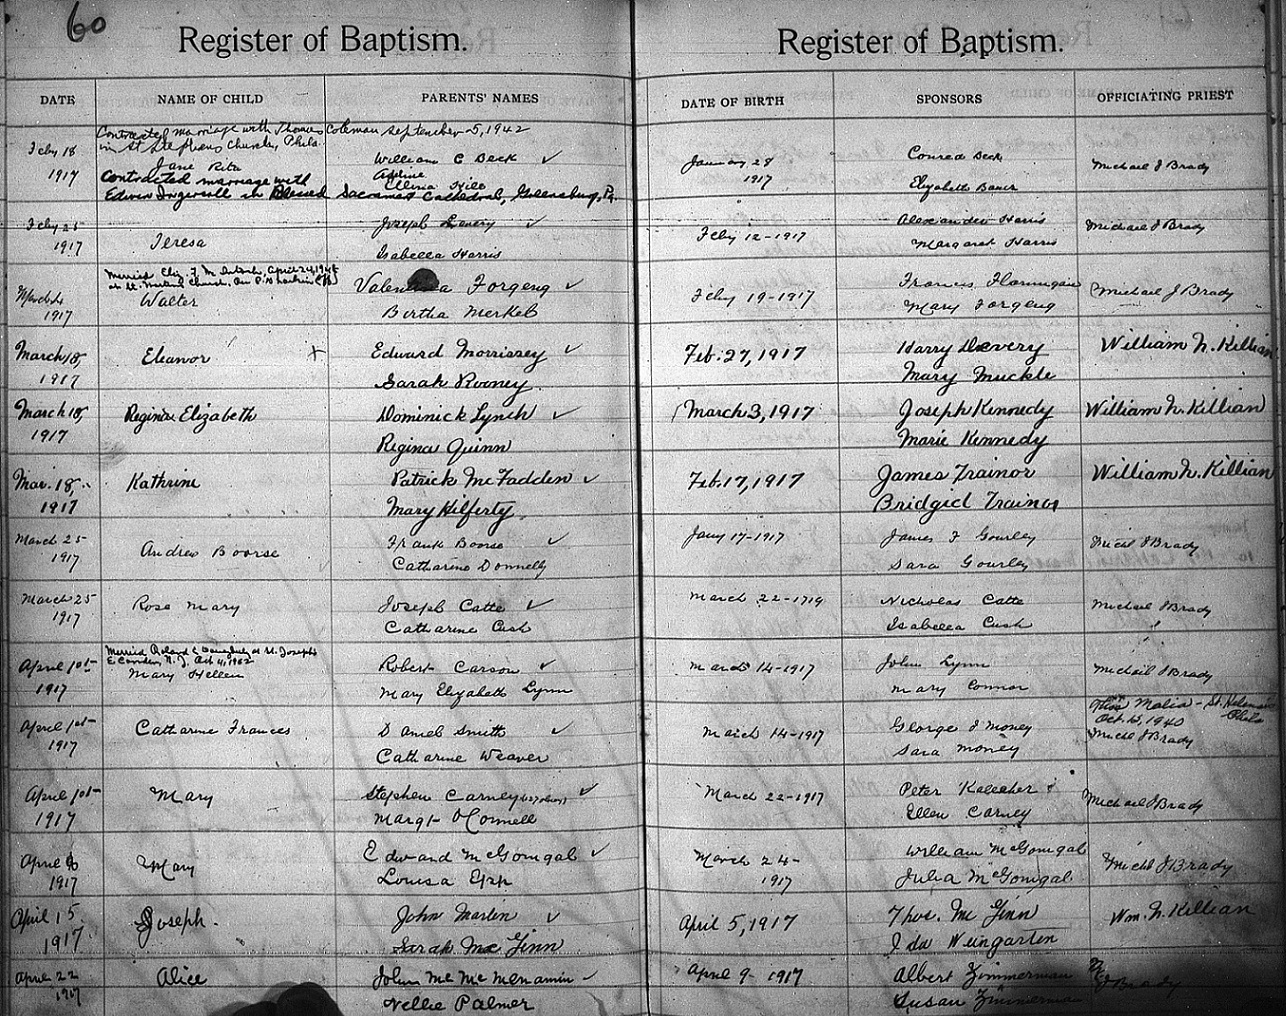 60
Register of Baptism. Register of Baptism.
DATE NAME OF CHILD PARENTS' NAMES DATE OF BIRTH SPONSORS OFFICIATING PRIEST
Contracted marriage with Thomas Coleman September 5, 1942
in St Stephens Church, Phila.
Feby 18 Jane Rita William C Beck ✓ January 28 Conrad Beck Michael J Brady
1917 Contracted marriage with Adeline 1917
Edwin Ingersoll in Blessed Sacrament Cathedral, Greensburg, Pa. Elizabeth Bauer
Feby 25 Teresa Joseph ✓ Feby 12-1917 Alexander Harris Michael J Brady
1917 Isabella Harris Margaret Harris
Married Eliz. F. April 24, 1948
at St. Church,
March 4 Walter Forgeng ✓ Feby 19-1917 Francis Flannigan Michael J Brady
1917 Bertha Merkel Mary Forgeng
March 18, Eleanor + Edward Morrissey ✓ Feb. 27, 1917 Harry Devery William N. Killian
1917 Sarah Rooney. Mary Muckle
March 18, Regina Elizabeth Dominick Lynch ✓ March 3, 1917 Joseph Kennedy William N. Killian
1917 Regina Quinn Marie Kennedy
Mar. 18, Kathrine Patrick McFadden ✓ Feb. 17, 1917 James Trainor William N. Killian
1917 Mary Hilferty Bridgid Trainor
March 25 Andrew Boorse Frank Boorse ✓ Jany 17-1917 James F Gourley Michl J Brady
1917 Catharine Donnelly Sara Gourley
March 25 Rose Mary Joseph Catte ✓ March 22-1719 Nicholas Catte Michael J Brady
1917 Catharine Cush Isabella Cush
Married Roland at St. Josephs
E Camden, N. J. Oct 4, 1952
April 1st Mary Hellen Robert Carson ✓ March 14-1917 John Lynn Michael J Brady
1917 Mary Elizabeth Lynn Mary Connor
Malia - St.
Oct. 12, 1940 Phila
April 1st Catharine Frances Daniel Smith ✓ March 14-1917 George J Money Michl J Brady
1917 Catharine Weaver Sara Money
April 1st Mary Stephen Carney ✓ March 22-1917 Peter Kelleher Michael J Brady
1917 Margt O'Connell Ellen Carney
April 8 Mary Edward McGonigal ✓ March 24- William McGonigal Michl J Brady
1917 Louisa Epp 1917 Julia McGonigal
April 15 Joseph. John Martin ✓ April 5, 1917 Thos. McGinn Wm. N. Killian
1917 Sarah McGinn Ida Weingarten
April 22 Alice John Mc McMenamin ✓ April 9- 1917 Albert Zimmerman J Brady
1917 Nellie Palmer Susan Zimmerman